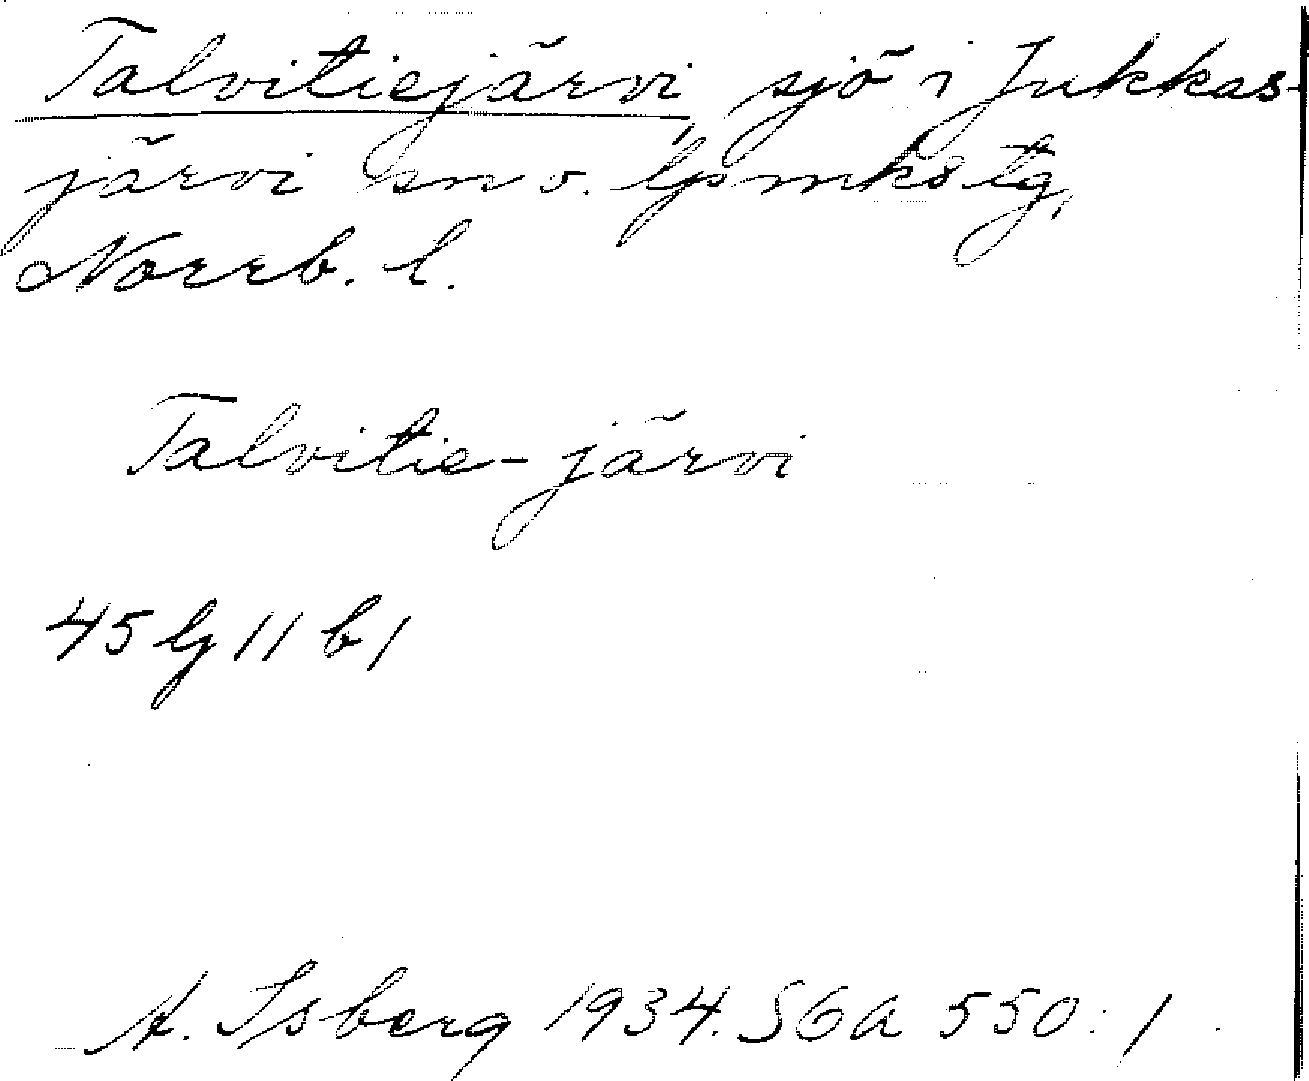 Talvitiejärvi, sjö i Jukkas-
järvi sn o. lpmkstg,
Norrb. l.
Talvitie-järvi
45 lj 11 b 1
A. Isberg 1934. SGA 550:1